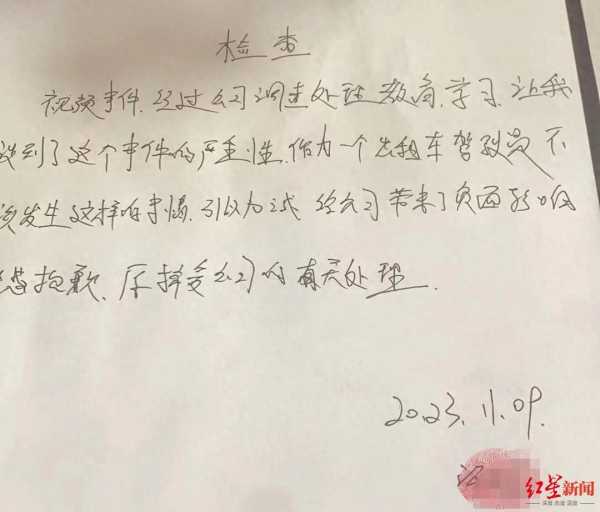 检查
视频事件,经过公司调查处理教育,学习,让我
识到了这个事件的严重性,作为一个出租车驾驶员不
该发生这样的事情,引以为戒,给公司带来了负面影响
抱歉,愿接受公司的有关处理.
2023.11.09.
红星新闻
深度 态度 温度